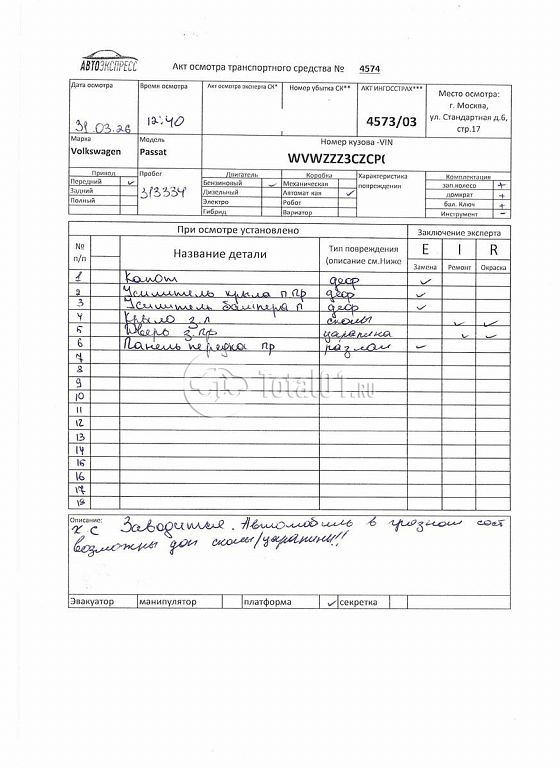 АВТОЭКСПРЕСС
Акт осмотра транспортного средства № 4574
Дата осмотра
Время осмотра
Акт осмотра эксперта СК*
Номер убытка СК**
АКТ ИНГОССТРАХ***
Место осмотра:
г. Москва,
ул. Стандартная д.6,
стр.17
31.03.26
12:40
4573/03
Марка
Модель
Номер кузова -VIN
Volkswagen
Passat
WVWZZZ3CZCP(
Привод
Пробег
Двигатель
Коробка
Характеристика повреждения
Комплектация
Передний ✓
Бензиновый ✓
Механическая
зап.колесо +
Задний
313334
Дизельный
Автомат кая ✓
домкрат +
Полный
Электро
Робот
бал. Ключ +
Гибрид
Вариатор
Инструмент -
При осмотре установлено
Заключение эксперта
№ п/п
Название детали
Тип повреждения (описание см.Ниже
E I R
Замена Ремонт Окраска
1 Капот деф ✓
2 Усилитель крыла п пр деф ✓
3 Усилитель бампера п деф ✓
4 Крыло з.л сколы ✓ ✓
5 Дверь з.пр царапина ✓ ✓
6 Панель передка пр разлом ✓
7
8
9
10
11
12
13
14
15
16
17
18
Total01.RU
Описание:
х.с Заводится. Автомобиль в грязном сост
возможны доп сколы/царапины!!
Эвакуатор манипулятор платформа ✓ секретка